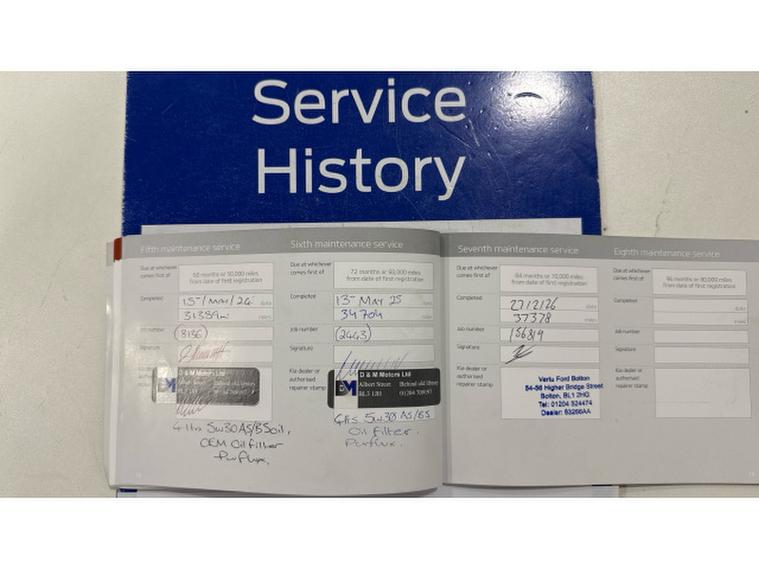 Service
History
Fifth maintenance service
Due at whichever comes first of
60 months or 50,000 miles
from date of first registration
Completed
15 May/24 date
miles
Job number
Signature
Kia dealer or authorised repairer stamp
D & M Motors Ltd
Albert Street Behind old library
BL3 1JH
4 ltrs 5w30 A5/B5 oil,
OEM Oil filter
Purflux.
Sixth maintenance service
Due at whichever comes first of
from date of first registration
Completed
13 May 25 date
34704 miles
Job number
(2443)
Signature
Kia dealer or authorised repairer stamp
D & M Motors Ltd
Albert Street Behind old library
4 ltrs 5w30 A5/B5
Oil filter.
Purflux.
Seventh maintenance service
Due at whichever comes first of
84 months or 70,000 miles
from date of first registration
Completed
date
37378 miles
Job number
156819
Signature
Kia dealer or authorised repairer stamp
Vertu Ford Bolton
54-56 Higher Bridge Street
Bolton, BL1 2HG
Tel: 01204 324474
Dealer: 53266AA
Eighth maintenance service
Due at whichever comes first of
96 months or 80,000 miles
from date of first registration
Completed
date
miles
Job number
Signature
Kia dealer or authorised repairer stamp